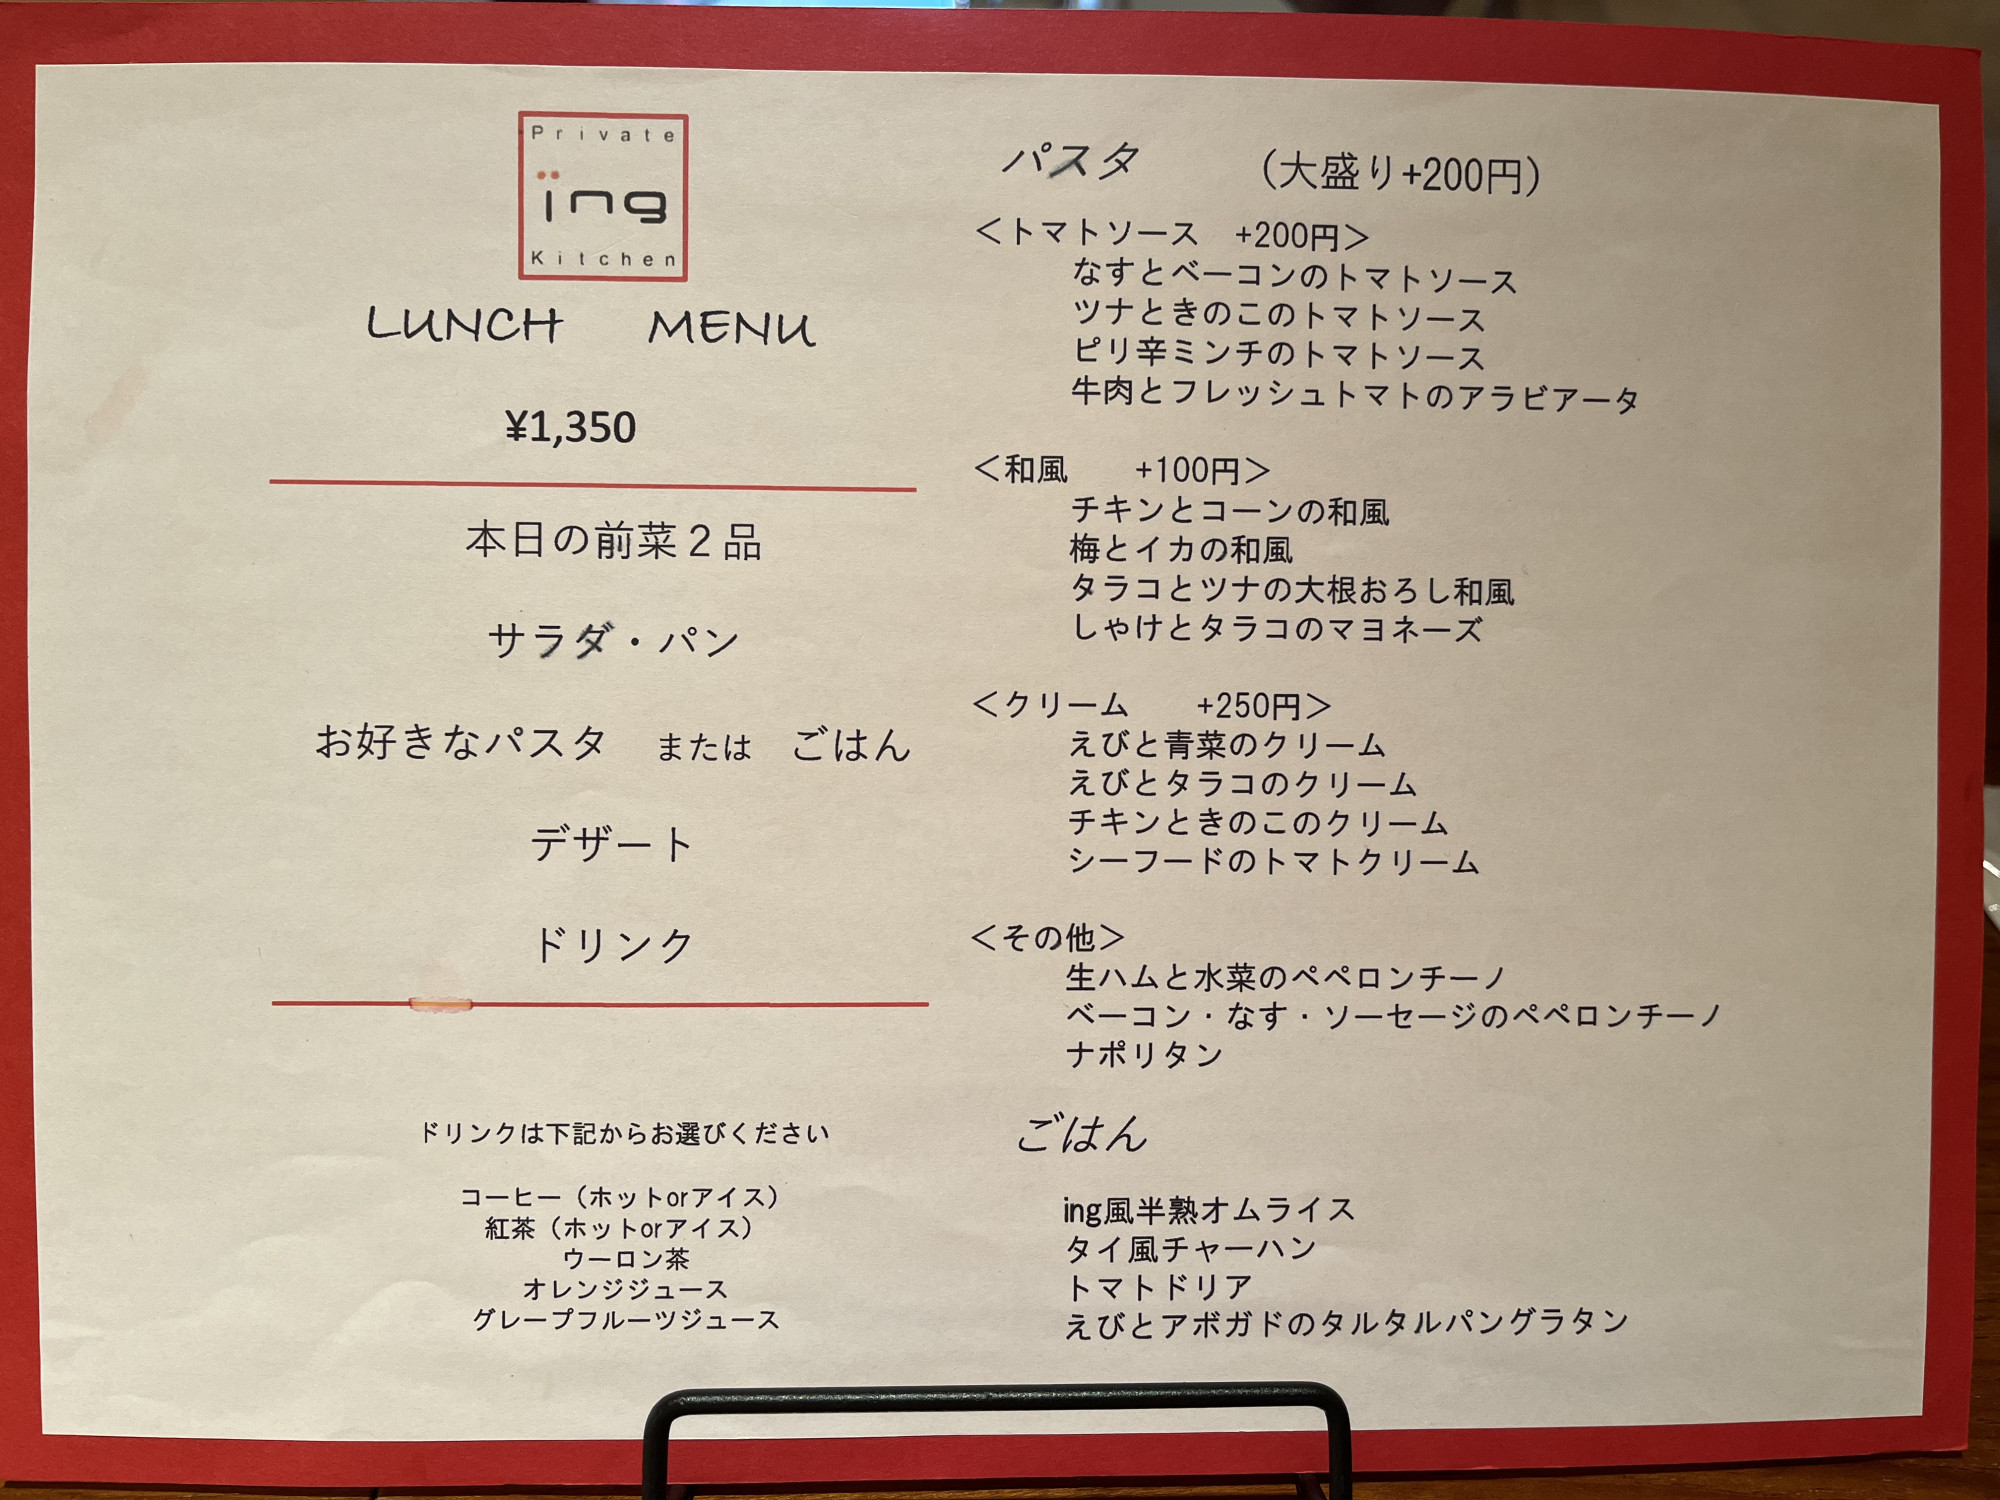 Private
ing
Kitchen
LUNCH MENU
¥1,350
本日の前菜２品
サラダ・パン
お好きなパスタ または ごはん
デザート
ドリンク
ドリンクは下記からお選びください
コーヒー（ホットorアイス）
紅茶（ホットorアイス）
ウーロン茶
オレンジジュース
グレープフルーツジュース
パスタ （大盛り+200円）
＜トマトソース +200円＞
なすとベーコンのトマトソース
ツナときのこのトマトソース
ピリ辛ミンチのトマトソース
牛肉とフレッシュトマトのアラビアータ
＜和風 +100円＞
チキンとコーンの和風
梅とイカの和風
タラコとツナの大根おろし和風
しゃけとタラコのマヨネーズ
＜クリーム +250円＞
えびと青菜のクリーム
えびとタラコのクリーム
チキンときのこのクリーム
シーフードのトマトクリーム
＜その他＞
生ハムと水菜のペペロンチーノ
ベーコン・なす・ソーセージのペペロンチーノ
ナポリタン
ごはん
ing風半熟オムライス
タイ風チャーハン
トマトドリア
えびとアボガドのタルタルパングラタン